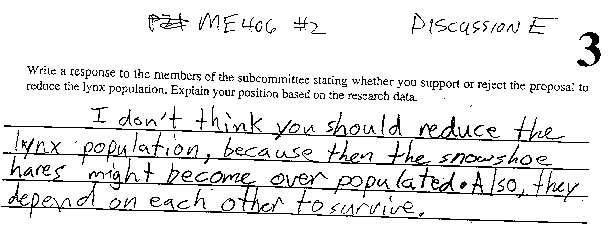 ME406 #2 DISCUSSION E
3
Write a response to the members of the subcommittee stating whether you support or reject the proposal to
reduce the lynx population. Explain your position based on the research data.
I don't think you should reduce the
lynx population, because then the snowshoe
hares might become over populated. Also, they
depend on each other to survive.